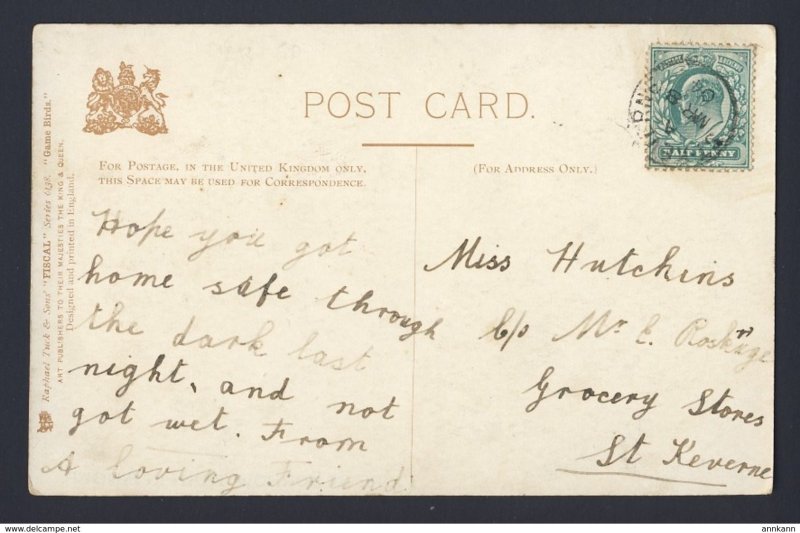 POST CARD.
FOR POSTAGE, IN THE UNITED KINGDOM ONLY,
THIS SPACE MAY BE USED FOR CORRESPONDENCE.
(FOR ADDRESS ONLY.)
HALFPENNY
Raphael Tuck & Sons' "FISCAL" Series "Game Birds."
ART PUBLISHERS TO THEIR MAJESTIES THE KING & QUEEN.
Designed and printed in England.
Hope you got
home safe through
the dark last
night, and not
got wet. From
A loving Friend
Miss Hutchins
c/o Mr E.
Grocery Stores
St Keverne
hipstamp.com
annkann